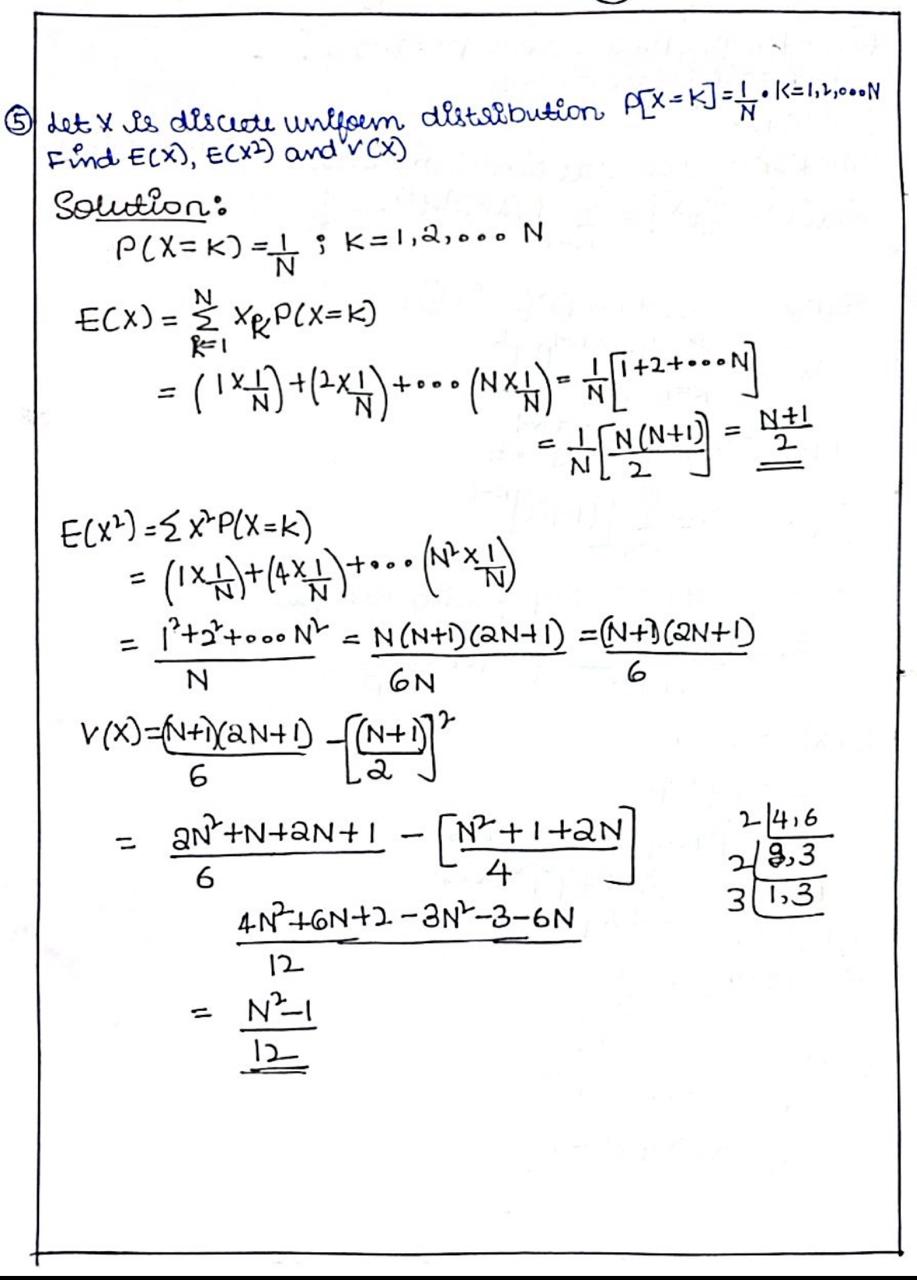 ⑤ Let X is discrete uniform distribution P[X=K]=1/N · K=1,2,...N
Find E(X), E(X²) and V(X)
Solution:
P(X=K) = 1/N ; K=1,2,... N
E(X) = N Σ k=1 X_k P(X=K)
= (1×1/N)+(2×1/N)+... (N×1/N) = 1/N [1+2+...N]
= 1/N [N(N+1)/2] = N+1/2
E(X²) = Σ X² P(X=K)
= (1×1/N)+(4×1/N)+... (N²×1/N)
= 1²+2²+...N²/N = N(N+1)(2N+1)/6N = (N+1)(2N+1)/6
V(X) = (N+1)(2N+1)/6 - [(N+1)/2]²
= 2N²+N+2N+1/6 - [N²+1+2N/4]
2|4,6
2|2,3
3|1,3
4N²+6N+2-3N²-3-6N/12
= N²-1/12